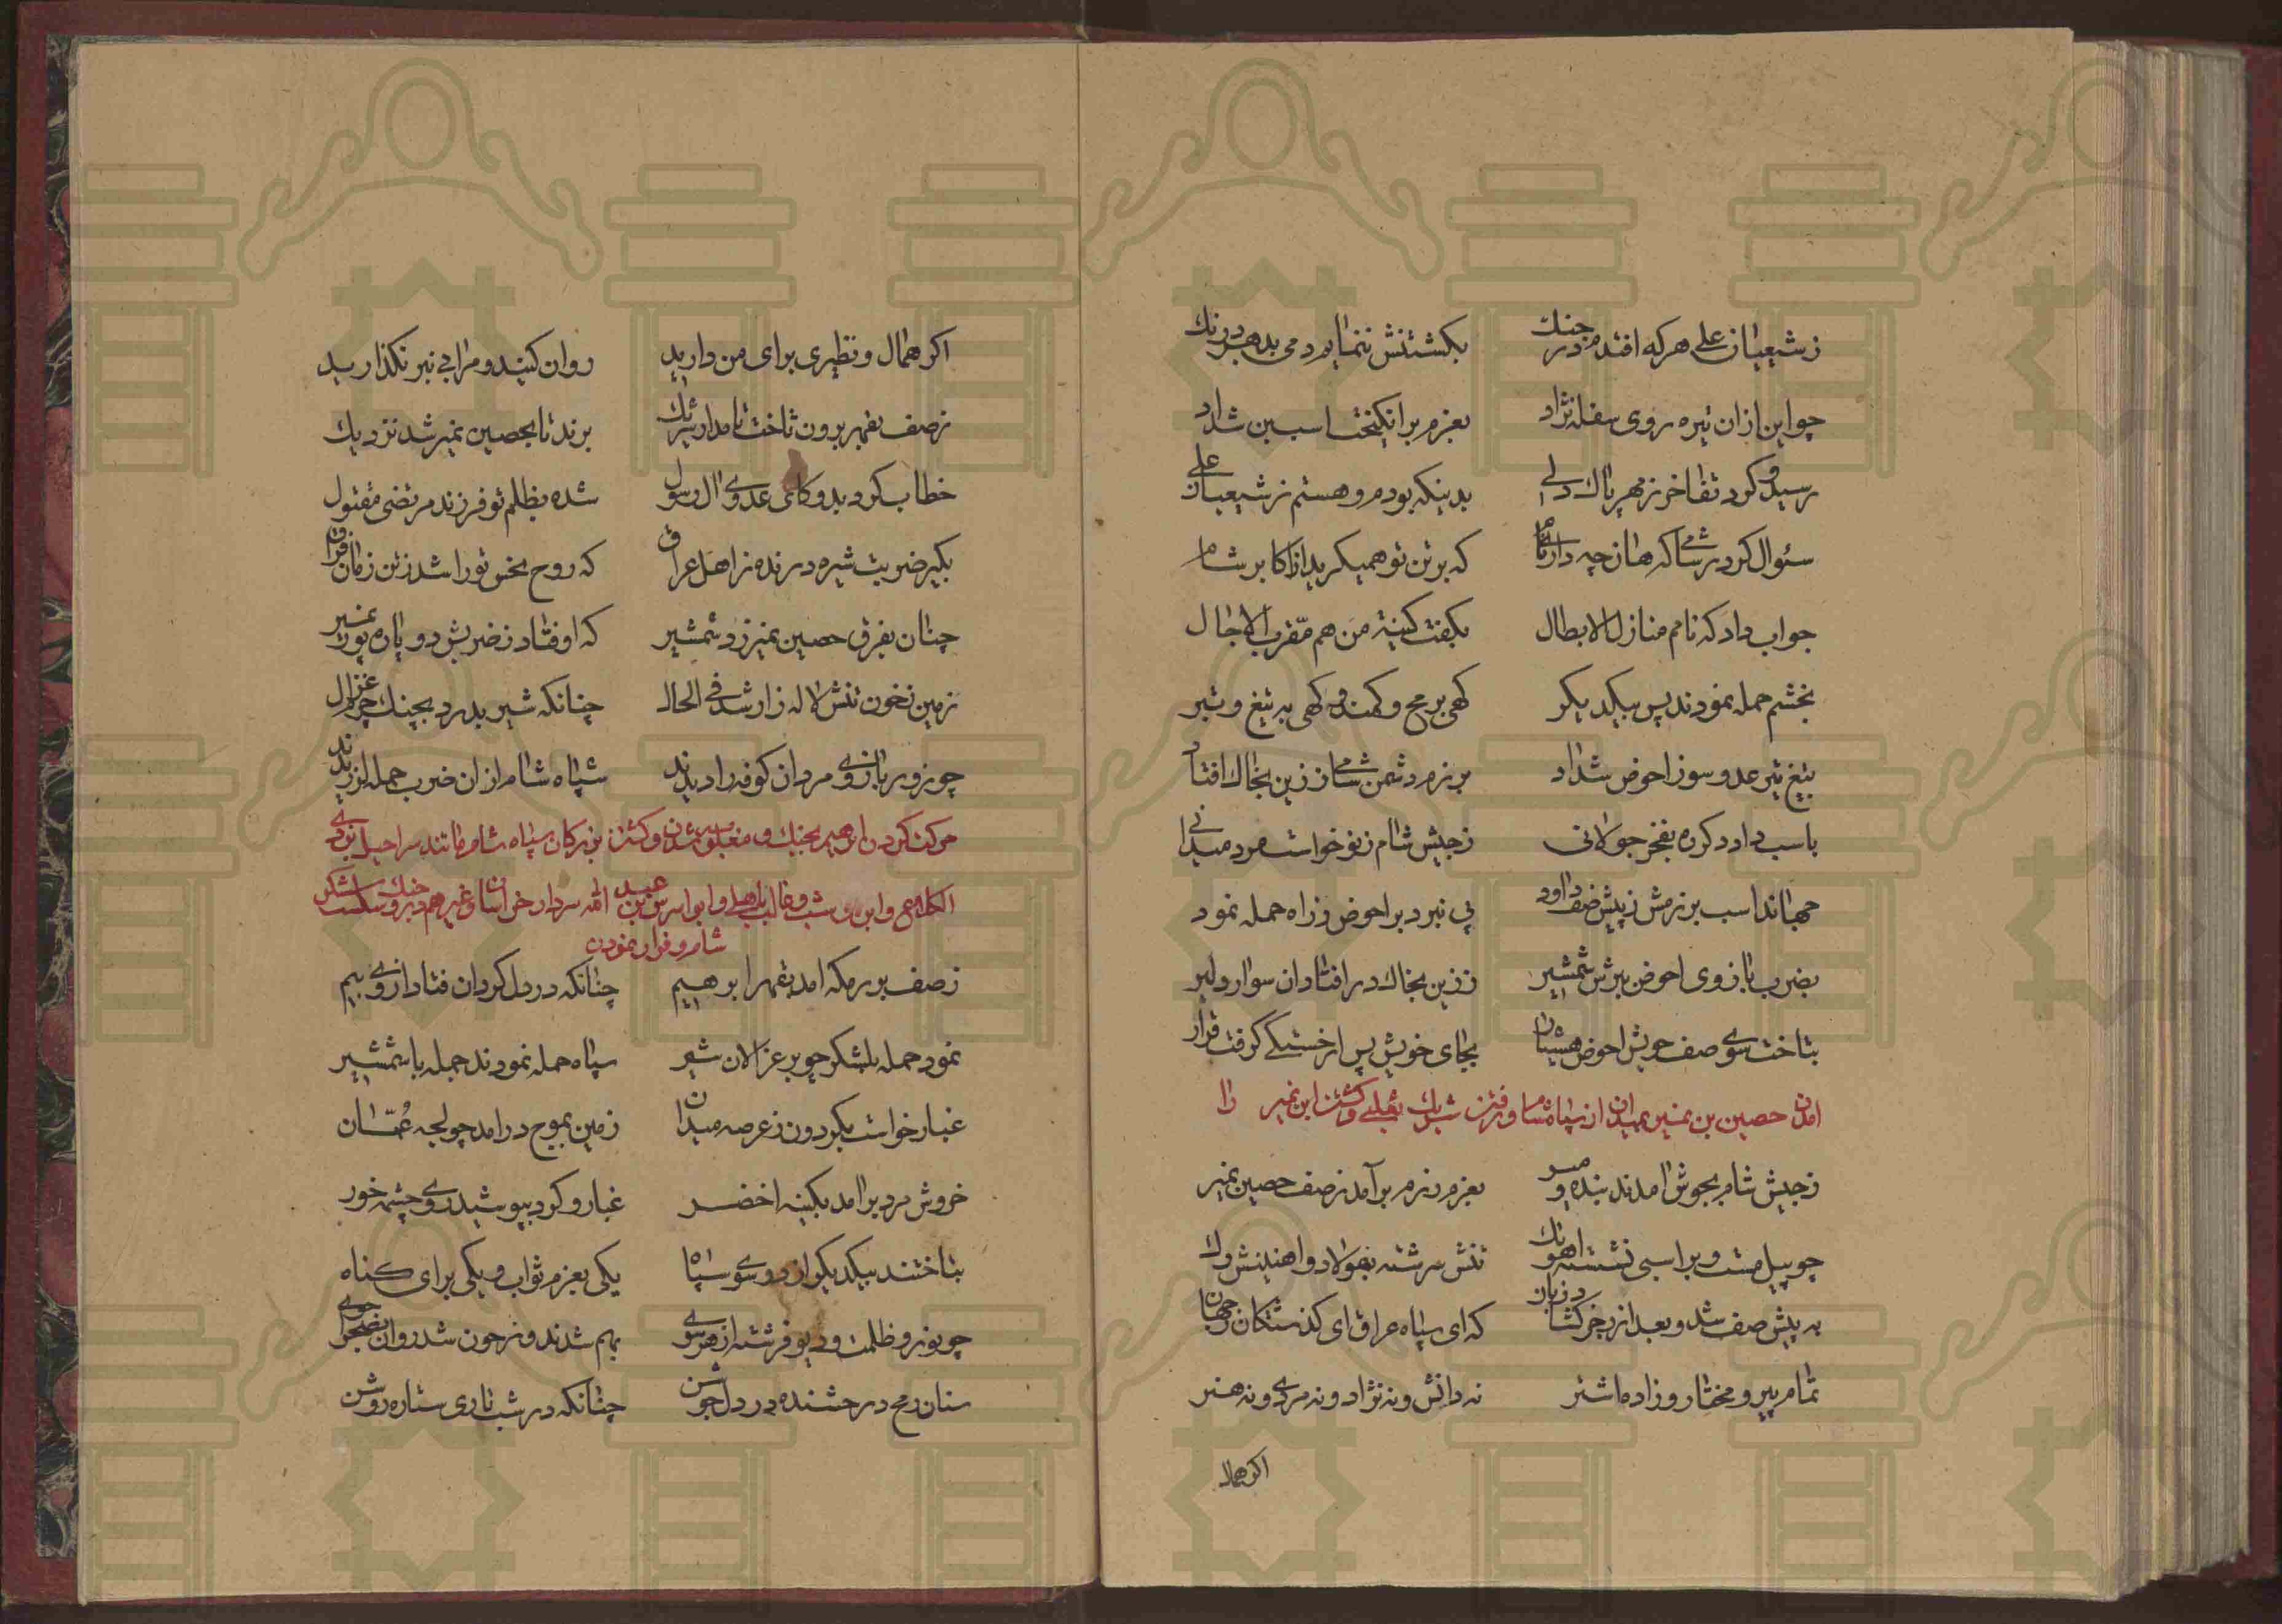 ز شیعیان علی هر که افتدم در جنك بکشتنش ننمایم دمی بدهر درنك
چو این ازان تیره روی سفله نژاد بعزم برانکیخت اسب بن شداد
رسید و کرد تفاخر ز مهر پاك دلی بدینکه بودم و هستم ز شیعیان علی
سئوال کرد ز شامی که هان چه داری نام که بر تن تو همیکرید از اکابر شام
جواب داد که نامم منازل الابطال بکفت کنیة من هم مقرب الاجال
بخشم حمله نمودند پس بیکدیکر کهی برمح و کمند و کهی به تیغ و تبر
بتیغ تیز عدو سوز احوض شداد برزم دشمن شامی ز زین بخاك افتاد
باسب داد دکر ره بفخر جولانی ز جیش شام زنو خواست مرد میدانی
جهاند اسب برزمش ز پیش صف داود پی نبرد بر احوض ز راه حمله نمود
بضرب بازوی احوض ببرش شمشیر ز زین بخاك در افتاد ان سوار دلیر
بتاخت سوی صف خویش احوض هشیار بجای خویش پس از خستکی کرفت قرار
امدن حصین بن نمیر بمیدان از سپاه شام و رفتن شریك تغلبی و کشتن ابن نمیر را
ز جیش شام بجوش امدند بنده و میر بعزم رزم برآمد ز صف حصین نمیر
چو پیل مست و بر اسبی نشسته اهو تك تنش سرشته بفولاد و اهنینش رك
به پیش صف شد و بعد از رجز کشاد زبان که ای سپاه عراق ای کذشتکان ز جهان
تمام پیرو مختار و زاده اشتر نه دانش و نه نژاد و نه مردی و نه هنر
اکر همال
اکر همال و نظیری برای من دارید روان کنید و مرا بی نبرد نکذارید
ز صف بقهر برون تاخت نامدار شریك برند تا بحصین نمیر شد نزدیك
خطاب کرد بدو کای عدوی ال رسول شده بظلم تو فرزند مرتضی مقتول
بکیر ضربت شیر درنده ز اهل عراق که روح نحس تو را شد ز تن زمان فراق
چنان بفرق حصین نمیر زد شمشیر که اوفتاد ز ضربش دو پاره پور نمیر
زمین ز خون تنش لاله زار شد فی الحال چنانکه شیر بدرد بچنك چرم غزال
چو زور بازوی مردان کوفه را دیدند سپاه شام از ان ضرب جمله لرزیدند
حرکت کردن ابرهیم بجنك و مغلوبه شدن و کشتن بزرکان سپاه شام مانند شراحیل بن ذی
الکلاع و ابن حوشب و غالب باهلی و ابی اشرس بن عبد الله سردار خراسان و غیرهم در جنك و شکست لشکر
شام و فرار نمودن
ز صف برزمکه امد بقهر ابرهیم چنانکه در دل کردان فتاد از وی بیم
نمود حمله بلشکر چو بر غزالان شیر سپاه حمله نمودند جمله با شمشیر
غبار خواست بکردون ز عرصه میدان زمین بموج درامد چو لجه عُمّان
خروش مرد برامد بکنبد اخضر غبار و کرد بپوشید روی چشمه خور
بتاختند بیکدیکر از دو سوی سپاه یکی بعزم ثواب و یکی برای کناه
چو نور و ظلمت و دیو فرشته از هر سوی بهم شدند و ز خون شد روان بصحرا جوی
سنان رمح درخشنده در دل جوشن چنانکه در شب تاری ستاره روشن